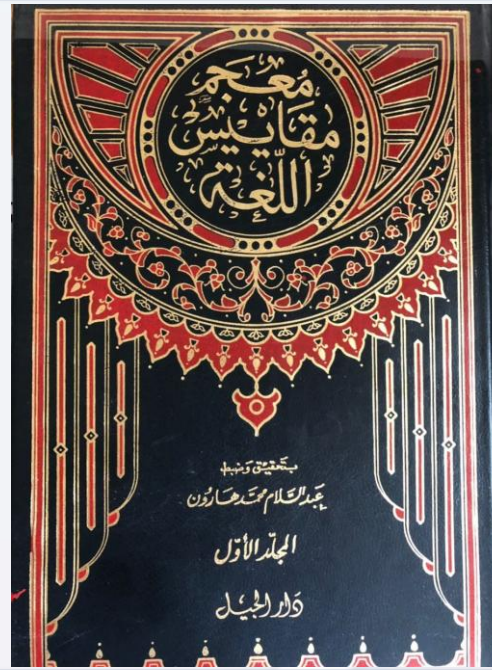 معجم
مقاييس
اللغة
بتحقيق وضبط
عبد السلام محمد هارون
المجلد الأول
دار الجيل